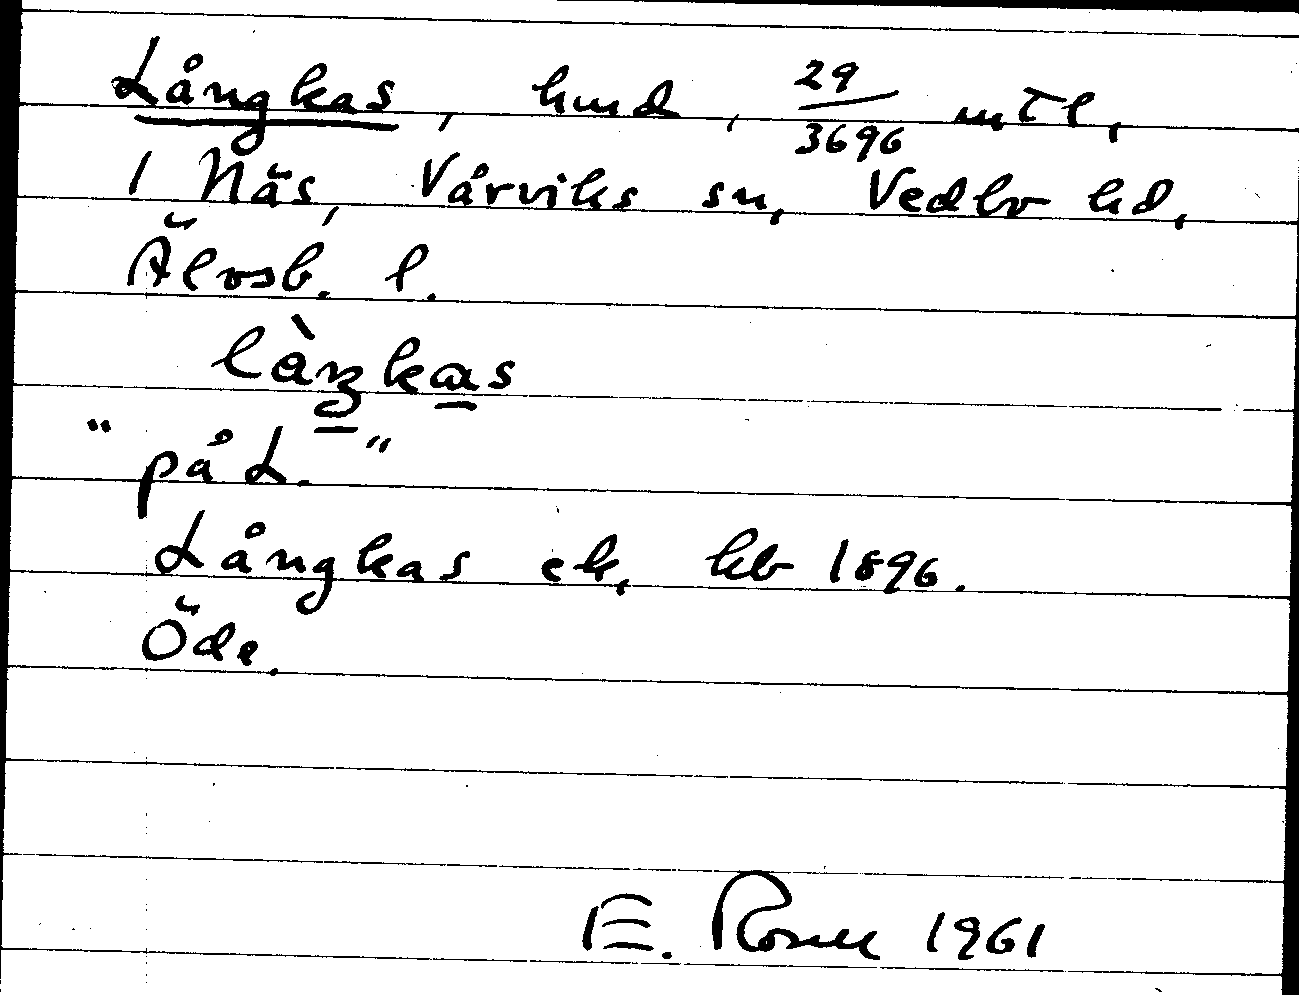 Långkas, hmd, 29/3696 mtl,
1 Näs, Vårviks sn, Vedbo hd,
Älvsb. l.
làŋkas
"på L."
Långkas ek, kb 1896.
Öde.
E. Rosell 1961